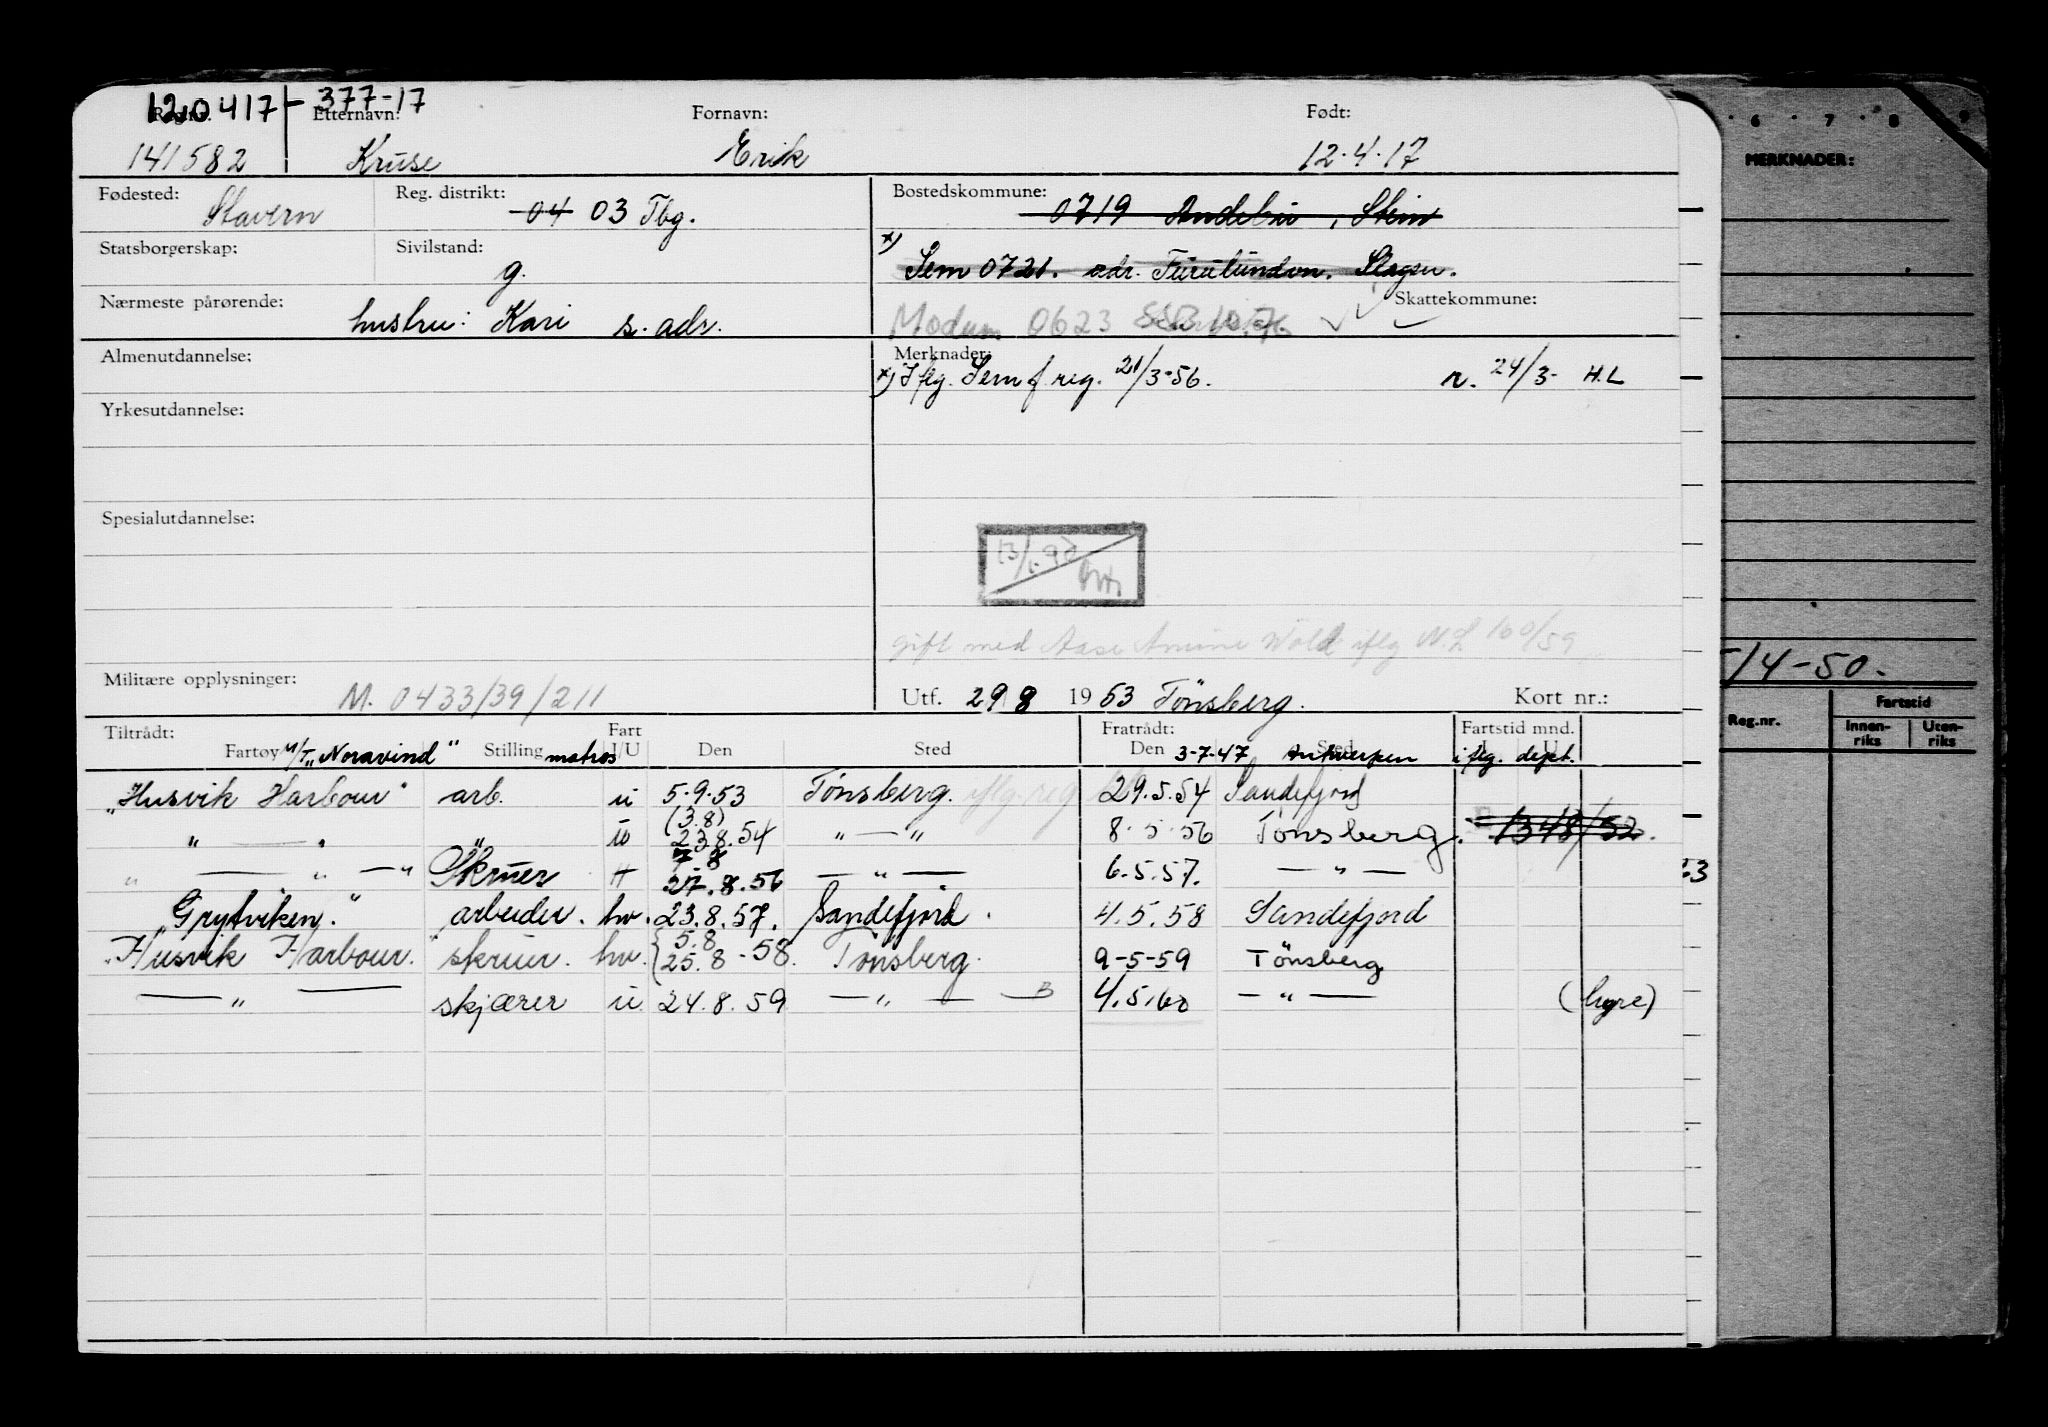 120417- 377-17
Reg.nr. Etternavn: Fornavn: Født:
141582 Kruse Erik 12.4.17
Fødested: Stavern Reg. distrikt: 04 03 Tbg. Bostedskommune: 0719 Andebu, Skim
Statsborgerskap: Sivilstand: g. x) Sem 0721. adr. Furulunden. Slagen.
Nærmeste pårørende: hustru: Kari s. adr. Modum 0623 SSB 10.76 Skattekommune:
Almenutdannelse: Merknader:
x) Iflg. Sem f. reg. 21/3-56. r. 24/3- H.L
Yrkesutdannelse:
Spesialutdannelse:
gift med Aase Amine Wold iflg N.L 160/59
Militære opplysninger: M. 0433/39/211 Utf. 29 8 1953 Tönsberg. Kort nr.:
Tiltrådt: Fart Fratrådt: Fartstid mnd.
Fartøy M/T "Noravind" Stilling matros I/U Den Sted Den 3-7-47 Sted Antwerpen iflg. dept. I U
"Husvik Harbour" arb. u 5.9.53 Tönsberg. iflg. reg 29.5.54 Sandefjord
" — " " u (3.8) 23.8.54 " — " 8.5.56 Tönsberg. 1348/52.
" — " — " Skruer H 7 8 27.8.56 — " — 6.5.57. — " —
"Grytviken." arbeider. hv. 23.8.57. Sandefjord. 4.5.58 Sandefjord
"Husvik Harbour." skruer. hv. 5.8 25.8.-58. Tönsberg. 9-5-59 Tönsberg
— " — skjærer u 24.8.59 — " — B 4.5.60 — " — (hyre)
6 7 8 9
MERKNADER:
/4-50.
Reg.nr. Fartstid
Innen-riks Uten-riks
63